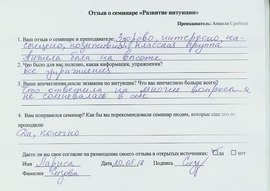 Отзыв о семинаре «Развитие интуиции»
Преподаватель:
1. Ваш отзыв о семинаре и преподавателе: Здорово, интересно, на-
сыщено, позитивно, классная группа
была на высоте
2. Что было для вас полезно, какая информация, упражнения?
все упражнения
3. Ваше впечатление после экзамена по интуиции? Что вас впечатлило больше всего?
Что ответила на много вопросов и
не сомневалась в себе
4. Вам понравился семинар? Как бы Вы порекомендовали семинар людям, которые еще его не
проходили:
Да, конечно
Даете ли вы свое согласие на размещение своего отзыва в открытых источниках: да нет
Имя Лариса Дата Подпись
Фамилия